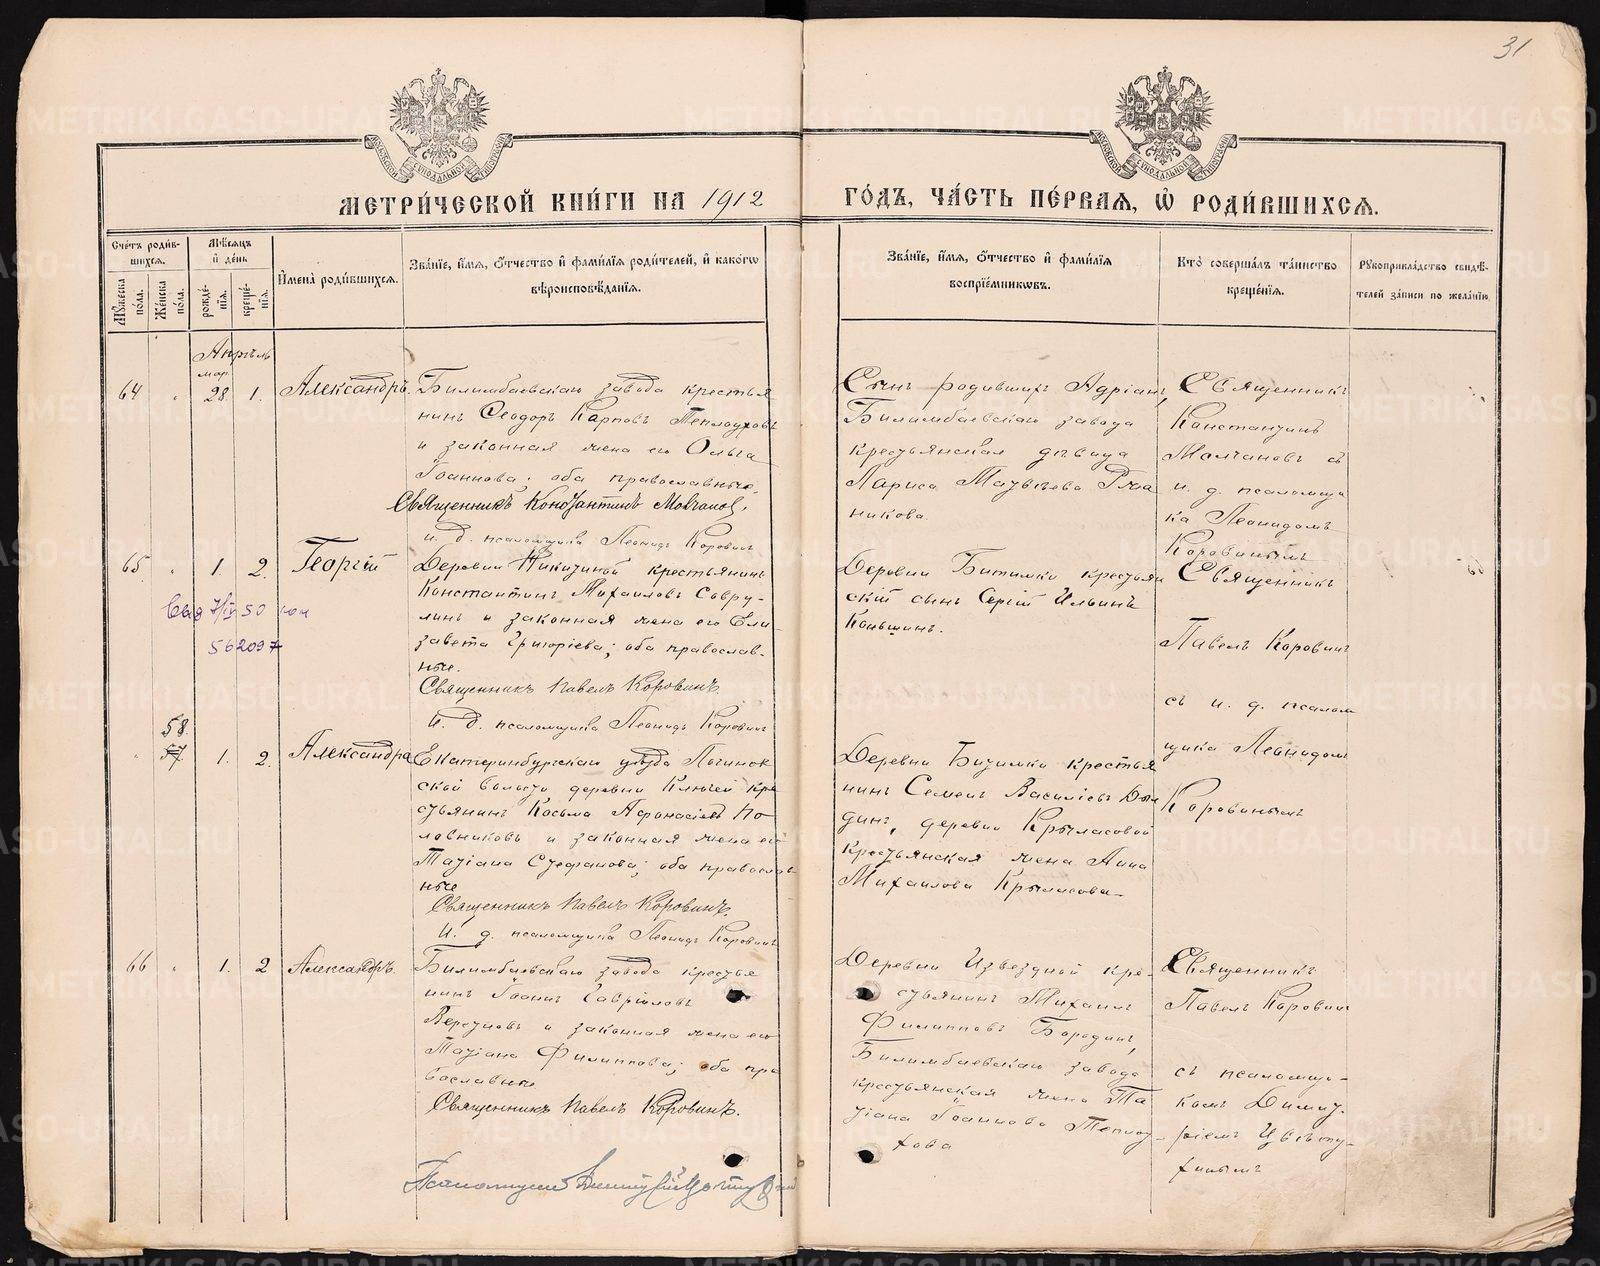 31
МЕТРИ́ЧЕСКОЙ КНИ́ГИ НА 1912 ГО́ДЪ, ЧА́СТЬ ПЕ́РВАЯ, Ѡ РОДИ́ВШИХСѦ.
Сче́тъ роди́в-
шихся.
Му́жеска по́ла.
Же́нска по́ла.
Мѣ́сяцъ
и де́нь
рожде́-
нїя.
креще́-
нїя.
И́мена роди́вшихся.
Зва́нїе, и́мя, о́тчество и фами́лїя роди́телей, и како́гѡ
вѣроисповѣ́данїя.
Зва́нїе, и́мя, о́тчество и фами́лїя
воспрїе́мникѡвъ.
Кто̀ соверша́лъ та́инство
креще́нїя.
Рꙋкоприкла́дство свидѣ́-
телей за́писи по жела́нїю.
Апрѣль
мар.
64 " 28 1. Александръ.
Билимбаевскаго завода крестья
нинъ Ѳеодоръ Карповъ Теплоуховъ
и законная жена его Ольга
Іоаннова; оба православные.
Священникъ Константинъ Молчановъ.
и. д. псаломщика Леонидъ Коровинъ
Сынъ родившихъ Адріанъ,
Билимбаевскаго завода
крестьянская дѣвица
Лариса Матвѣева
никова.
Священникъ
Константинъ
Молчановъ съ
и. д. псаломщи
ка Леонидомъ
Коровинымъ
65. " 1. 2. Георгій
7/IV 50
562097
Деревни Никитиной крестьянинъ
Константинъ Михаиловъ Савру-
линъ и законная жена его Ели-
завета Григоріева; оба православ-
ные.
Священникъ Павелъ Коровинъ.
И. д. псаломщика Леонидъ Коровинъ
Деревни Битимки крестьян
скій сынъ Сергій Ильинъ
Коньшинъ.
Священникъ
Павелъ Коровинъ
съ и. д. псалом
щика Леонидомъ
Коровинымъ
58.
57. 1. 2. Александра
Екатеринбургскаго уѣзда
ской волости деревни Ключей кре
стьянинъ Косьма Афонасіевъ По
ловниковъ и законная жена его
Татіана Стефанова; оба православ
ные
Священникъ Павелъ Коровинъ.
И. д. псаломщика Леонидъ Коровинъ
Деревни Битимки крестья
нинъ Семенъ Василіевъ
динъ, деревни Крыласовой
крестьянская жена Анна
Михаилова Крыласова.
66 " 1. 2 Александръ.
Билимбаевскаго завода крестья
нинъ Іоаннъ Гавріиловъ
и законная жена его
Татіана Филиппова; оба пра
вославные
Священникъ Павелъ Коровинъ.
Деревни Извездной кре-
стьянинъ Михаилъ
Филипповъ Бородинъ,
Билимбаевскаго завода
крестьянская жена Та
тіана Іоаннова Теплоу-
хова
Священникъ
Павелъ Коровинъ
съ псаломщи-
комъ Димит-
ріемъ Цвѣту-
хинымъ
METRIKI.GASO-URAL.RU